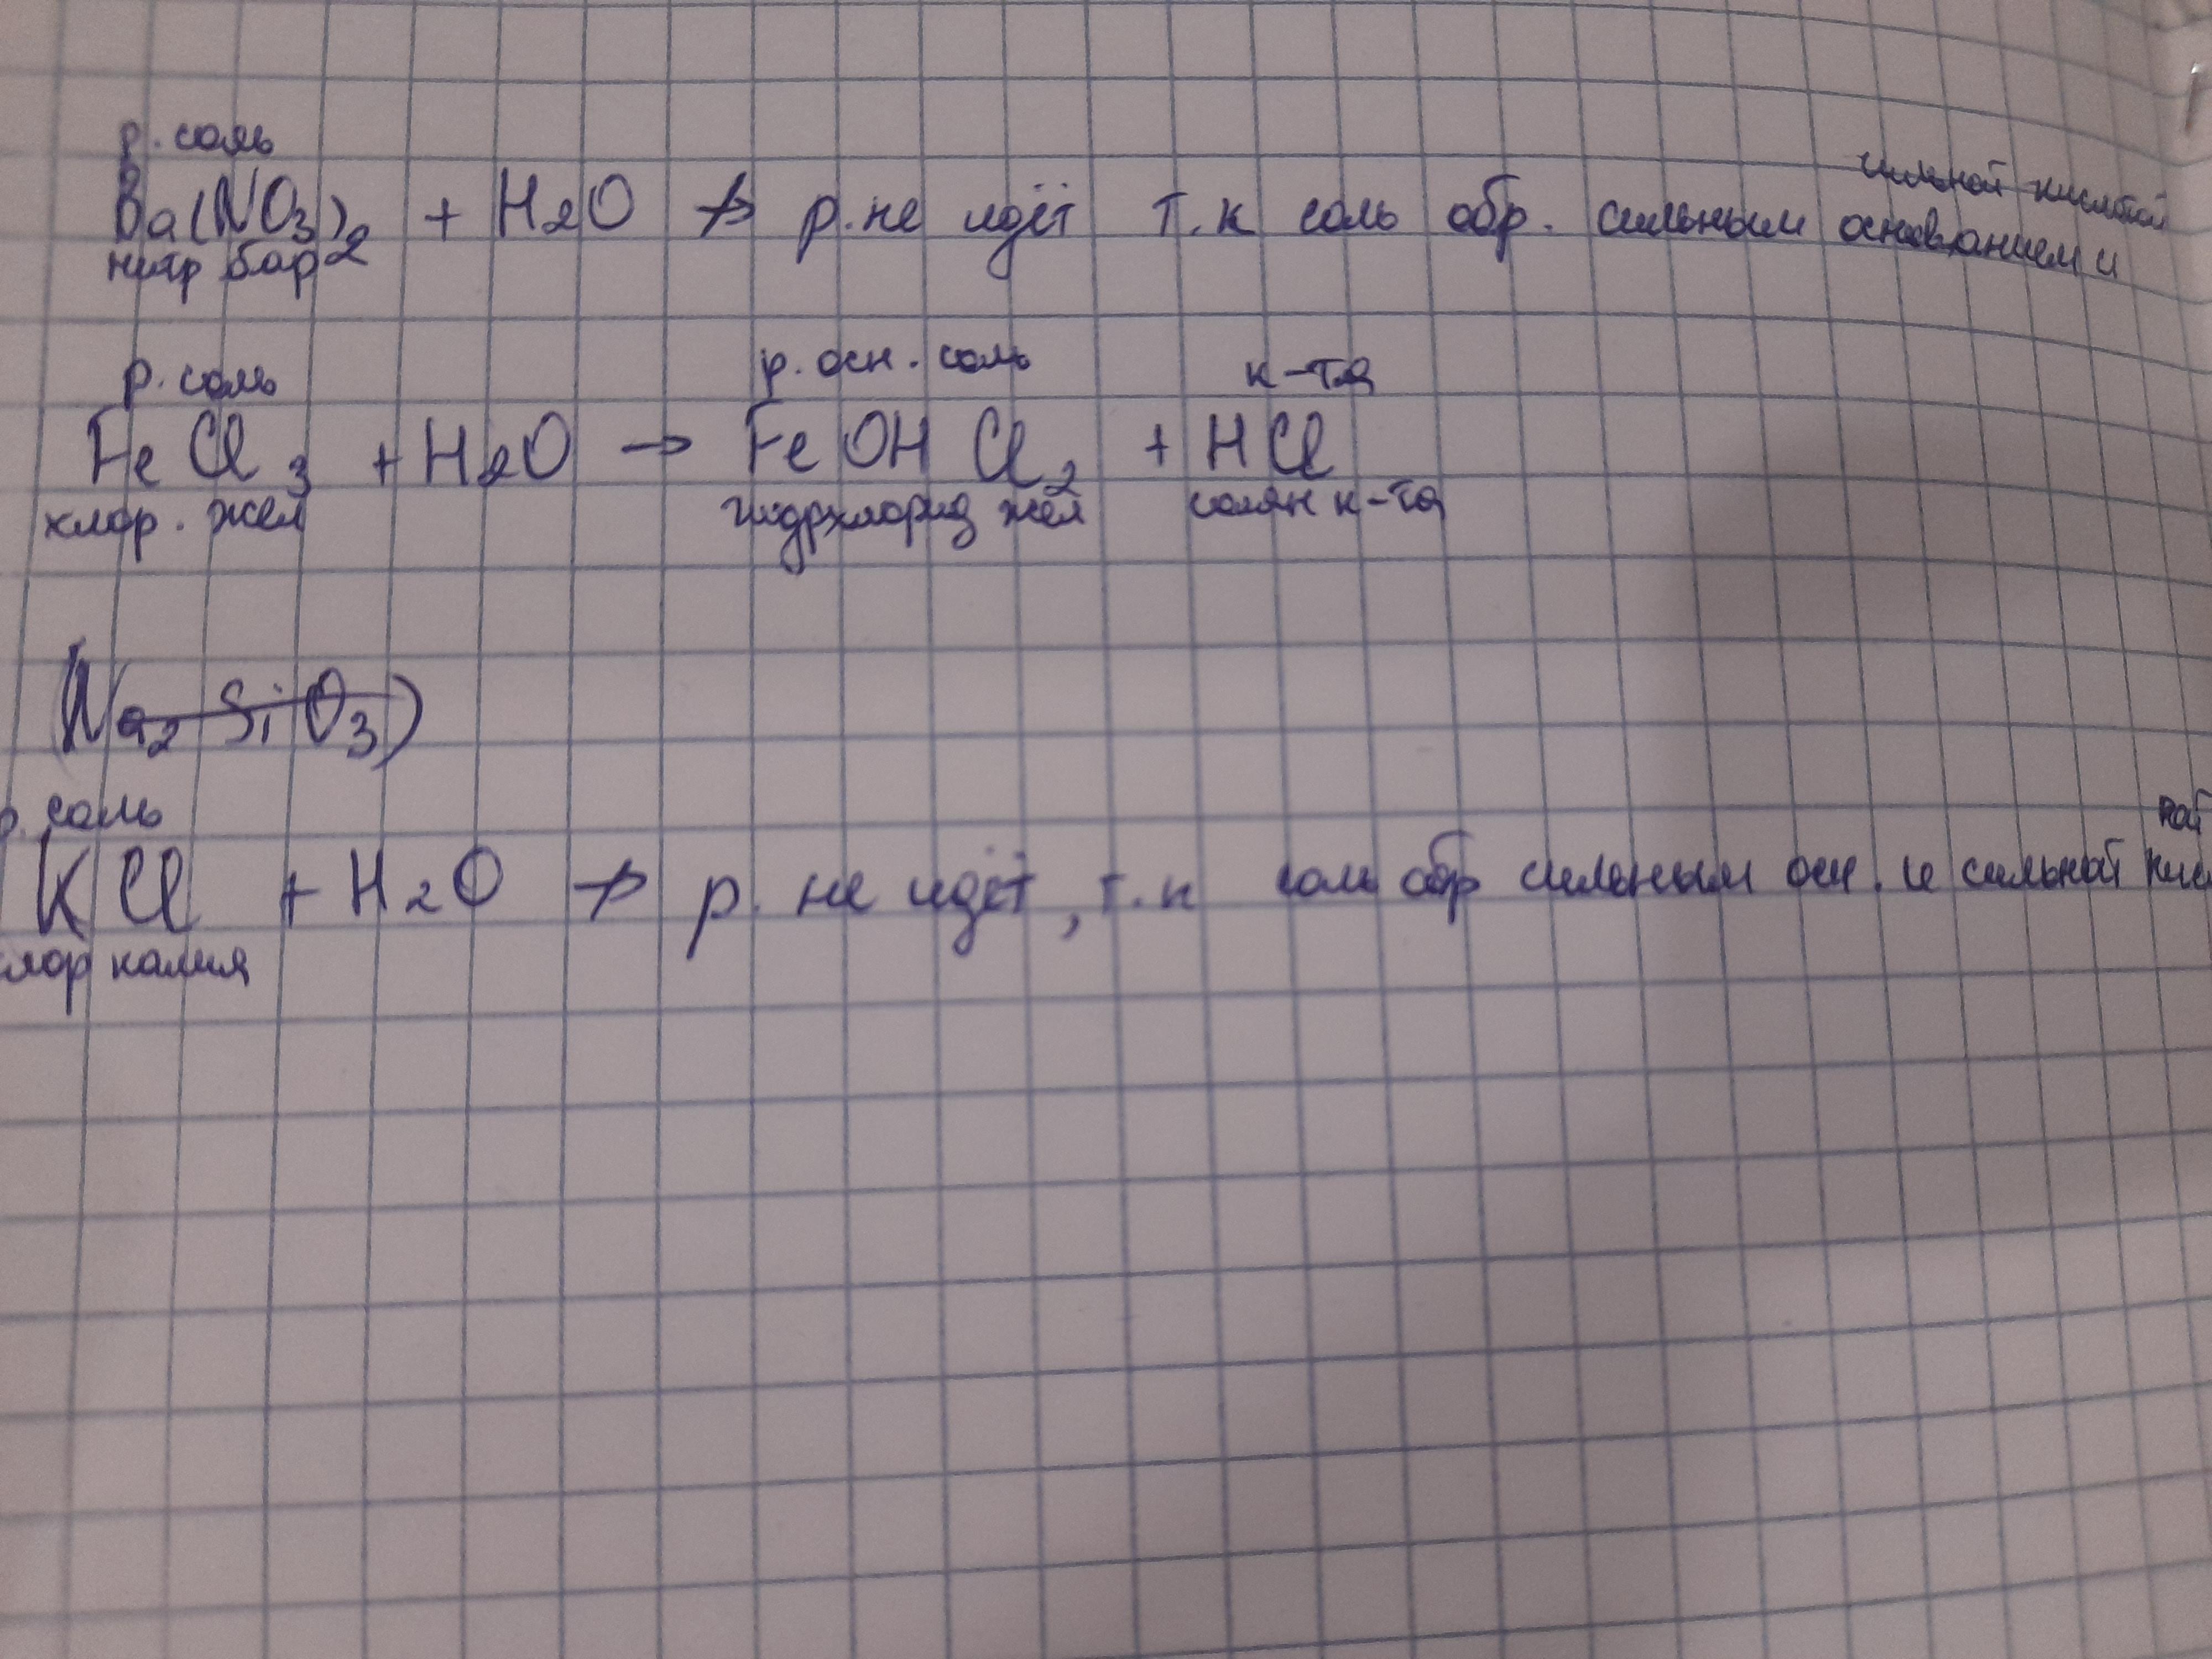 р. соль
сильной кислотой
Ba(NO3)2 + H2O ↛ р. не идёт т.к соль обр. сильным основанием и
нитр бар
р. соль р. осн. соль к-та
FeCl3 + H2O → FeOHCl2 + HCl
хлор. жел гидрхлорид жел солян к-та
(Na2SiO3)
р. соль
ной
KCl + H2O ↛ р. не идёт, т.к соль обр сильным осн. и сильной кис
хлор калия